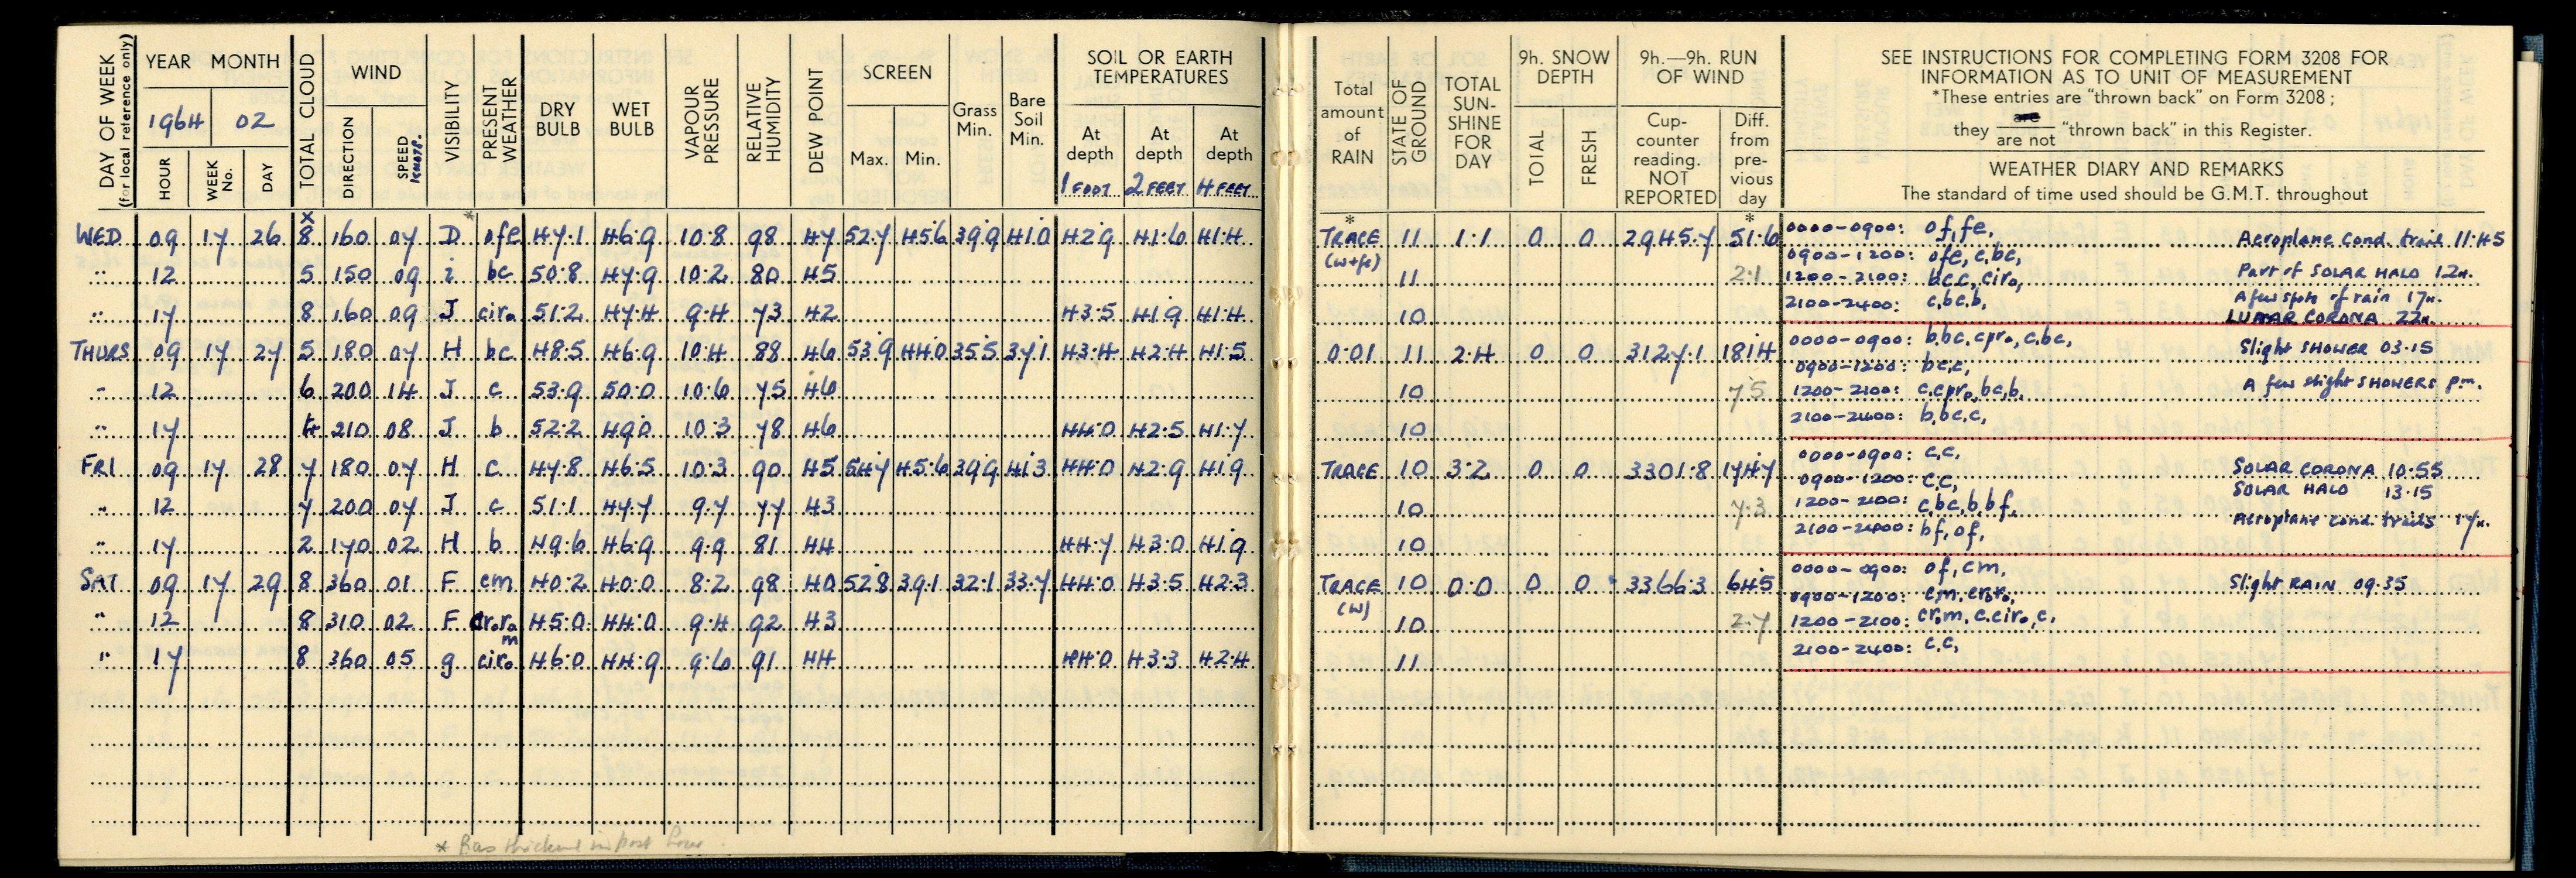 DAY OF WEEK (for local reference only)
YEAR MONTH
1964 02
HOUR WEEK No. DAY
TOTAL CLOUD
WIND
DIRECTION SPEED KNOTS.
VISIBILITY
PRESENT WEATHER
DRY BULB
WET BULB
VAPOUR PRESSURE
RELATIVE HUMIDITY
DEW POINT
SCREEN
Max. Min.
Grass Min.
Bare Soil Min.
SOIL OR EARTH TEMPERATURES
At depth 1 FOOT
At depth 2 FEET
At depth 4 FEET
WED 09 17 26 8 160 07 D ofe 47.1 46.9 10.8 98 47 52.7 45.6 39.9 41.0 42.9 41.6 41.4
" 12 5 150 09 i bc 50.8 47.9 10.2 80 45
" 17 8 160 09 J ciro 51.2 47.4 9.4 73 42 43.5 41.9 41.4
THURS 09 17 27 5 180 07 H bc 48.5 46.9 10.4 88 46 53.9 44.0 35.5 37.1 43.4 42.4 41.5
" 12 6 200 14 J c 53.9 50.0 10.6 75 46
" 17 210 08 J b 52.2 49.0 10.3 78 46 44.0 42.5 41.7
FRI 09 17 28 7 180 07 H c 47.8 46.5 10.3 90 45 54.7 45.6 39.9 41.3 44.0 42.9 41.9
" 12 7 200 07 J c 51.1 47.7 9.7 77 43
" 17 2 170 02 H b 49.6 46.9 9.9 81 44 44.7 43.0 41.9
SAT 09 17 29 8 360 01 F cm 40.2 40.0 8.2 98 40 52.8 39.1 32.1 33.7 44.0 43.5 42.3
" 12 8 310 02 F croro m 45.0 44.0 9.4 92 43
" 17 8 360 05 g ciro 46.0 44.9 9.6 91 44 44.0 43.3 42.4
Total amount of RAIN
STATE OF GROUND
TOTAL SUN-SHINE FOR DAY
9h. SNOW DEPTH
TOTAL FRESH
9h.—9h. RUN OF WIND
Cup-counter reading. NOT REPORTED
Diff. from pre-vious day
SEE INSTRUCTIONS FOR COMPLETING FORM 3208 FOR
INFORMATION AS TO UNIT OF MEASUREMENT
*These entries are "thrown back" on Form 3208;
they are / are not "thrown back" in this Register.
WEATHER DIARY AND REMARKS
The standard of time used should be G.M.T. throughout
TRACE (w+fe) 11 1.1 0 0 2945.7 51.6 0000-0900: of,fe, Aeroplane cond. trail 11.45
0900-1200: ofe, c,bc,
11 2.1 1200-2100: bc,c, ciro, Part of SOLAR HALO 12h.
10 2100-2400: c,bc,b, A few spots of rain 17h.
LUNAR CORONA 22h.
0.01 11 2.4 0 0 3127.1 181.4 0000-0900: b,bc,cpro,c,bc, Slight SHOWER 03.15
0900-1200: bc,c,
10 7.5 1200-2100: c,cpro,bc,b, A few slight SHOWERS p.m.
10 2100-2400: b,bc,c,
TRACE 10 3.2 0 0 3301.8 174.7 0000-0900: c,c, SOLAR CORONA 10.55
0900-1200: c,c, SOLAR HALO 13.15
10 7.3 1200-2100: c,bc,b,bf, Aeroplane cond. trails 17h.
10 2100-2400: bf,of,
TRACE (w) 10 0.0 0 0 3366.3 64.5 0000-0900: of,cm, Slight RAIN 09.35
0900-1200: cm,croro,
10 2.7 1200-2100: crom,c,ciro,c,
11 2100-2400: c,c,